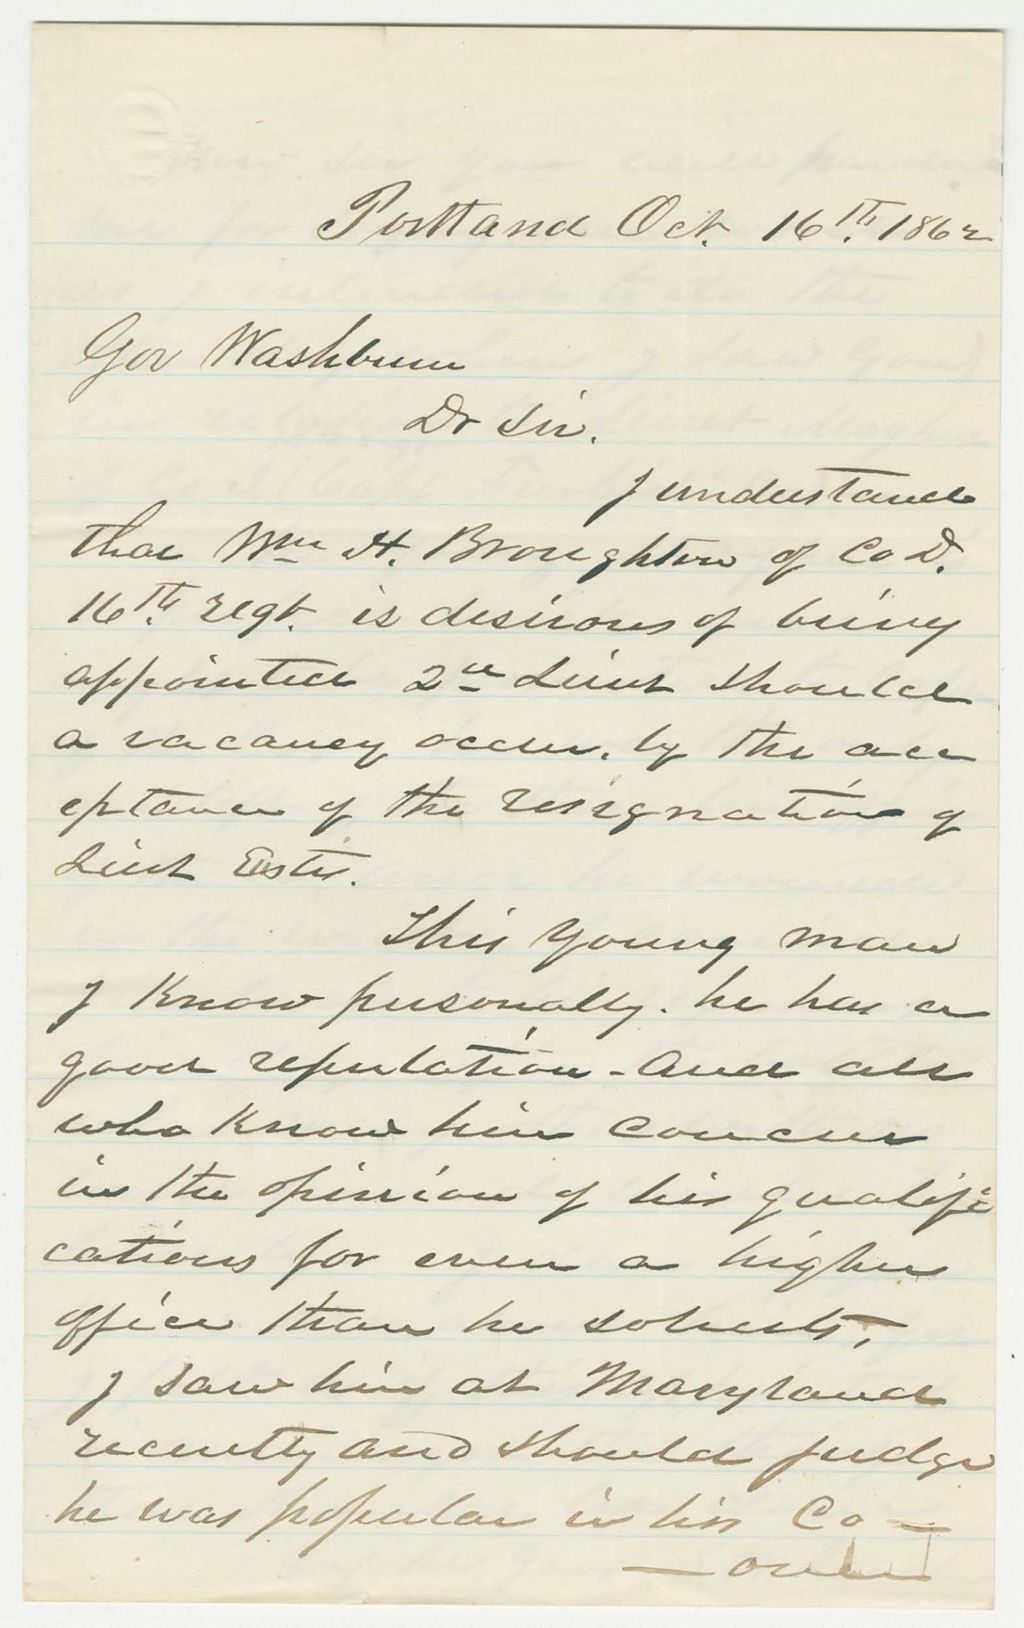 Portland Oct. 16th. 1862
Gov Washburn
Dr Sir.
I understand
that Wm H. Broughton of Co D.
16th. Regt. is desirous of being
appointed 2nd Lieut should
a vacancy occur, by the acc
eptance of the resignation of
Lieut Estes.
This young man
I know personally. he has a
good reputation - and all
who know him concur
in the opinion of his qualifi
cations for even a higher
office than he solicits,
I saw him at Maryland
recently and should judge
he was popular in his Co -
- over